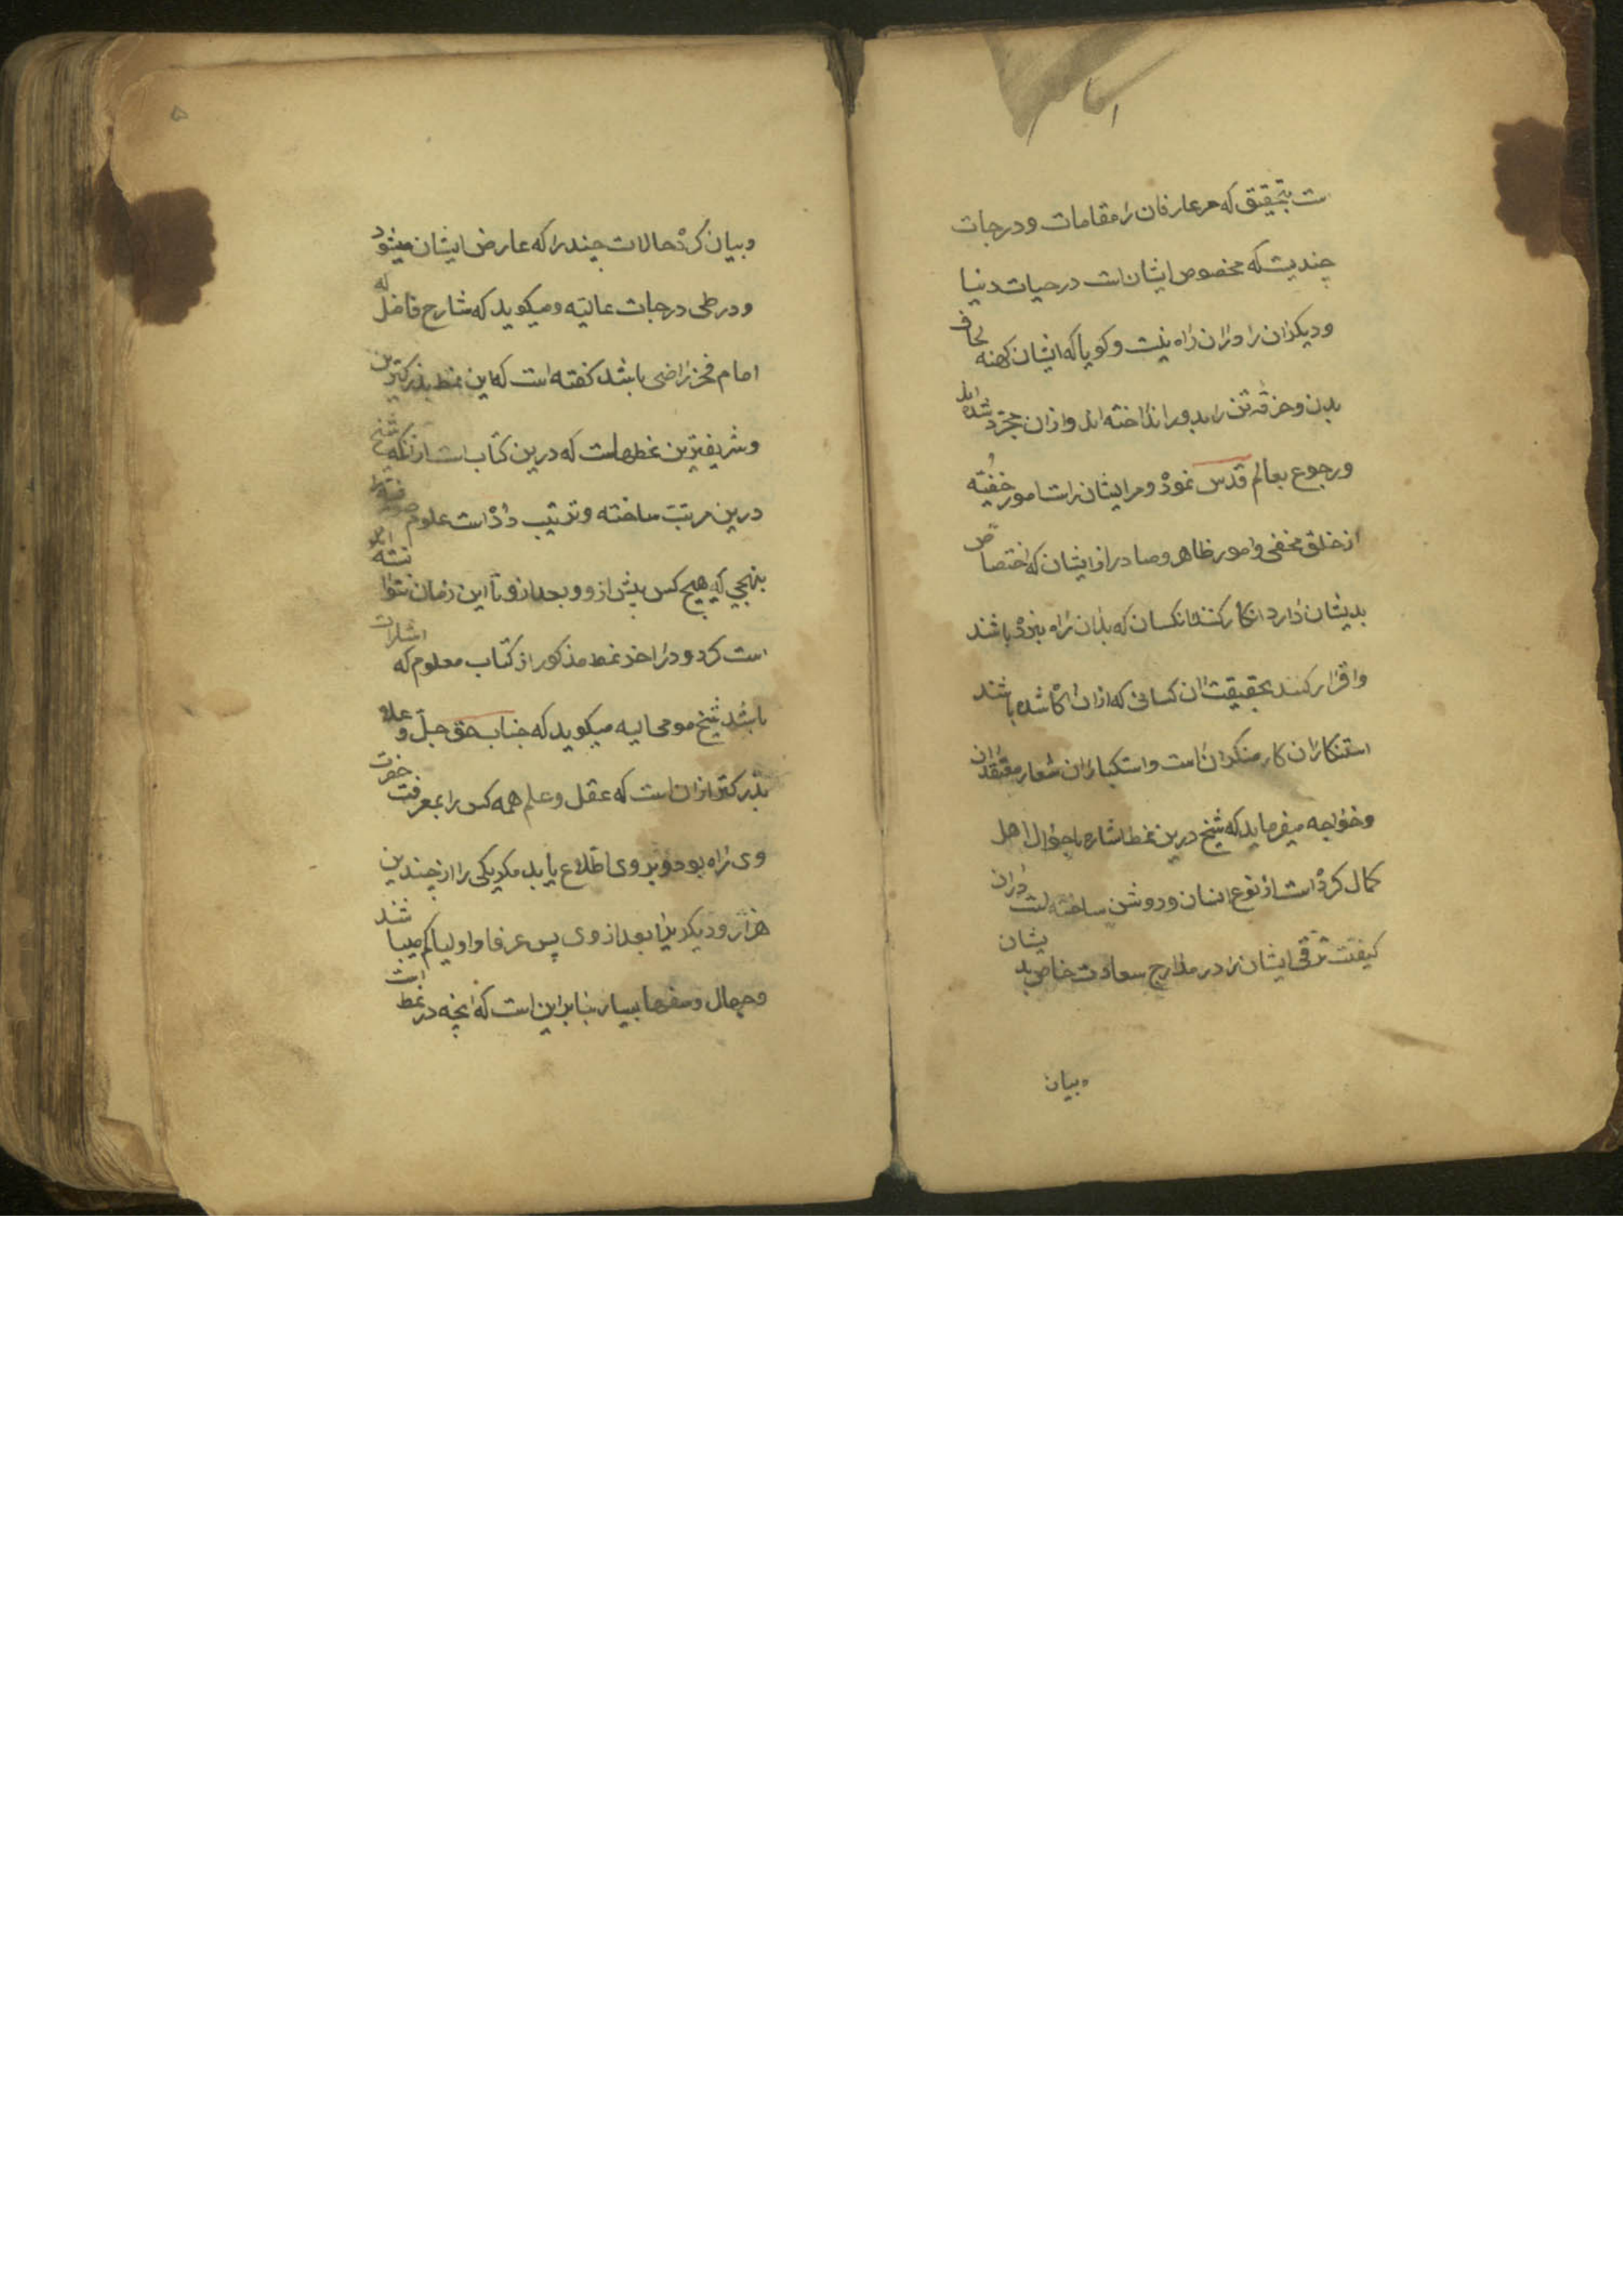 ست بتحقیق که مر عارفان را مقامات و درجات
چندیست که مخصوص ایشان است در حیات دنیا
و دیکران را دران راه نیست و کویا که ایشان کهنه لحاف
بدن و خرقه تن را بدور انداخته اند و ازان مجرد شده اند
و رجوع بعالم قدس نموده و مر ایشان راست امور خفیّه
از خلق مخفی و امور ظاهر و صادر از ایشان که اختصاص
بدیشان دارد انکار کنند انکسان که بدان راه نبرده باشند
و اقرار کنند بحقیقت ان کسانی که ازان اکاه شده باشند
استنکاران کار منکران است و استکباران شعار معتقدان
و خواجه میفرماید که شیخ درین نمط اشاره باحوال اهل
کمال کرده است از نوع انسان و روشن ساخته است دران
کیفیت ترقی ایشان را در مدارج سعادت خاص بدیشان
و بیان
۵
و بیان کرده حالات چند را که عارض ایشان میشود
و در طی درجات عالیّه و میکوید که شارح فاضل که
امام فخر راضی باشد کفته است که این نمط بزرکترین
و شریفترین نمطهاست که درین کتاب است ازانکه شیخ
درین مرتب ساخته و ترتیب داده است علوم صوفیه را
بنهجی که هیچ کس پیش ازو و بعد ازو تا این زمان نتوانسته
است کرد و در اخر نمط مذکور از کتاب معلوم که اشارات
باشد شیخ مومی الیه میکوید که جناب حق جلّ و علا
بزرکتر ازان است که عقل و علم همه کس را بمعرفت حضرت
وی راه بود و بر وی اطلاع یابد مکر یکی را از چندین
هزار و دیکریرا بعد از وی پس عرفا و اولیا کم میباشند
و جهال و سفها بسیار بنابراین است که انچه در نمط است